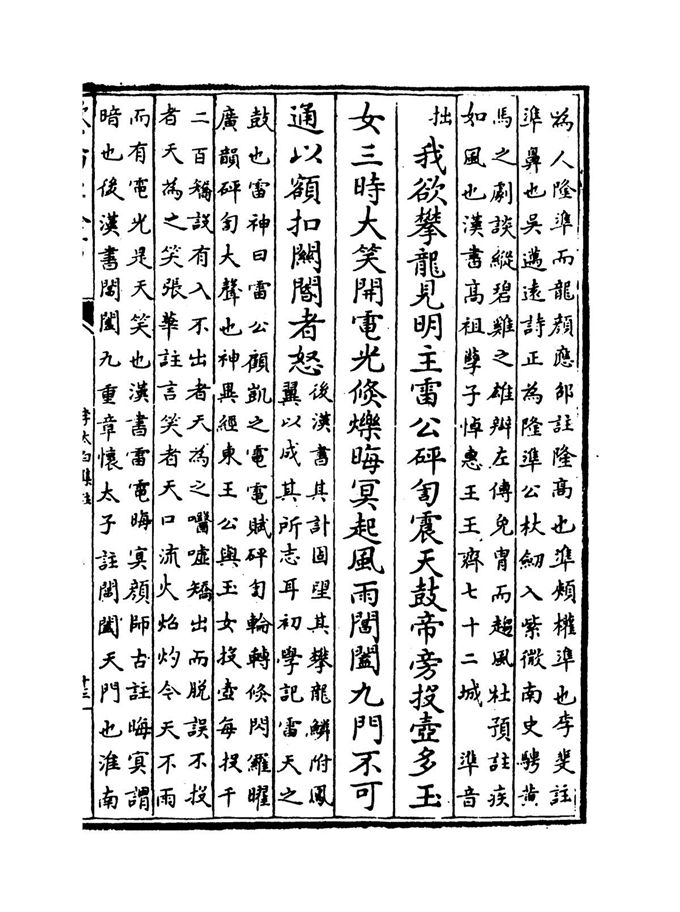 為人隆準而龍顏應邵註隆高也準頰權準也李斐註
準鼻也吳邁遠詩正為隆準公杖劒入紫微南史騁黄
馬之劇談縱碧雞之雄辯左傳免胄而趨風杜預註疾
如風也漢書高祖孽子悼惠王王齊七十二城 準音
拙
我欲攀龍見明主雷公砰訇震天鼓帝旁投壺多玉
女三時大笑開電光倐爍晦冥起風雨閶闔九門不可
通以額扣關閽者怒
後漢書其計固望其攀龍鱗附鳳
翼以成其所志耳初學記雷天之
鼓也雷神曰雷公顧凱之電電賦砰訇輪轉倐閃羅曜
廣韻砰訇大聲也神異經東王公與玉女投壺每投千
二百矯設有入不出者天為之嚂嘘矯出而脱誤不投
者天為之笑張華註言笑者天口流火焰灼令天不雨
而有電光是天笑也漢書雷電晦冥顔師古註晦冥謂
暗也後漢書閶闔九重章懷太子註閶闔天門也淮南
李太白集註
十三